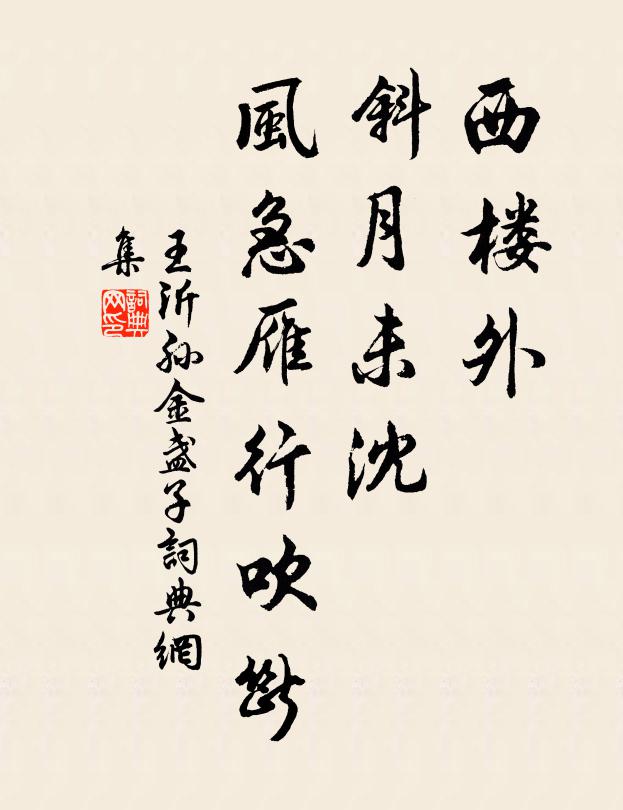 西楼外
斜月未沈
風急雁行吹斷
王沂孙金盏子詞典網
集
詞典
网印